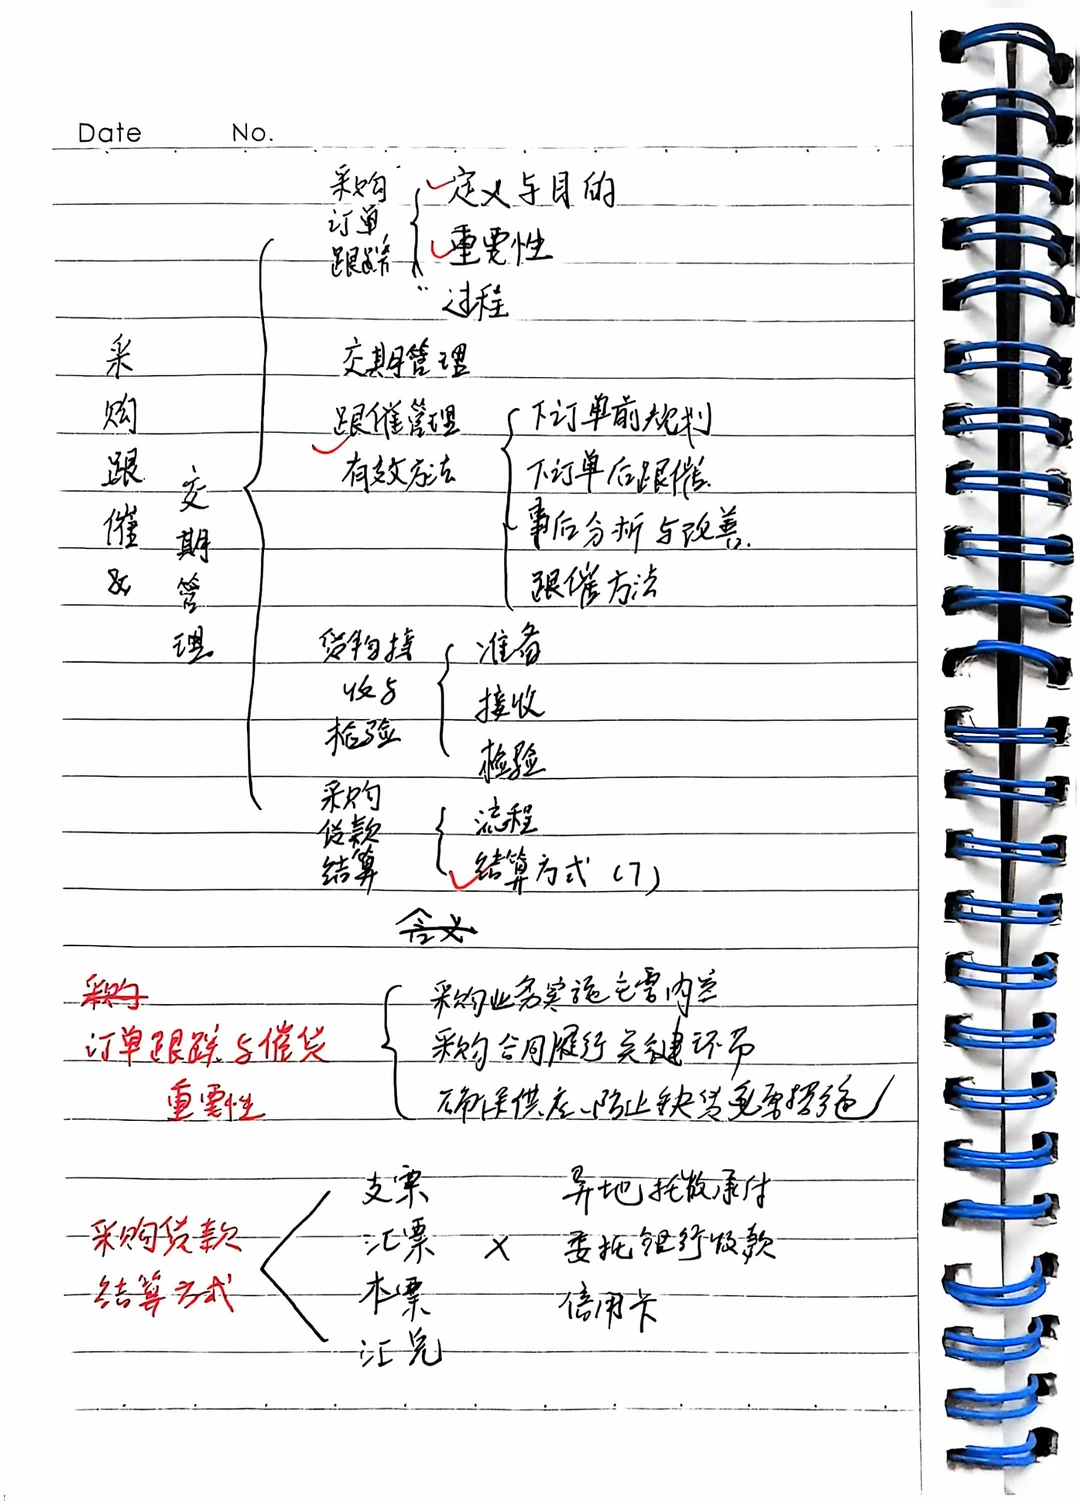 Date No.
采购
订单
跟踪
定义与目的
重要性
过程
采购跟催&
交期管理
交期管理
跟催管理
有效方法
下订单前规划
下订单后跟催
事后分析与改善.
跟催方法
货物接
收与
检验
准备
接收
检验
采购
货款
结算
流程
结算方式(7)
含义
采购
订单跟踪与催货
重要性
采购业务实施主要内容
采购合同履行关键环节
确保供应、防止缺货重要措施
采购货款
结算方式
支票
汇票 ×
本票
汇兑
异地托收承付
委托银行收款
信用卡